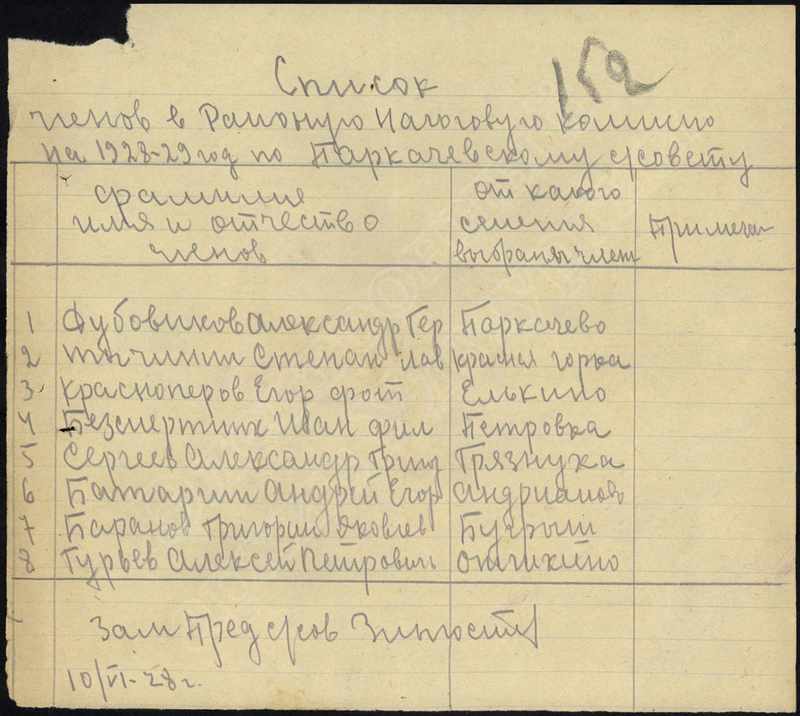 152
Список
членов в Районную Налоговую комисию
на 1928-29 год по Паркачевскому с/совету
фамилия имя и отчество членов | от какого селения выбраны член | Примечан
1 Дубовиков Александр Гер Паркачево
2 Степан Пав красная горка
3 Красноперов Егор фот Елькино
4 Безсмертных Иван фил Петровка
5 Сергеев Александр Григ Грязнуха
6 Батарин Андрей Егор Андрианово
7 Баранов Григории Яковлев Бугрыш
8 Гурьев Алексей Петрович
Зам Пред с/сов
10/VI-28 г.